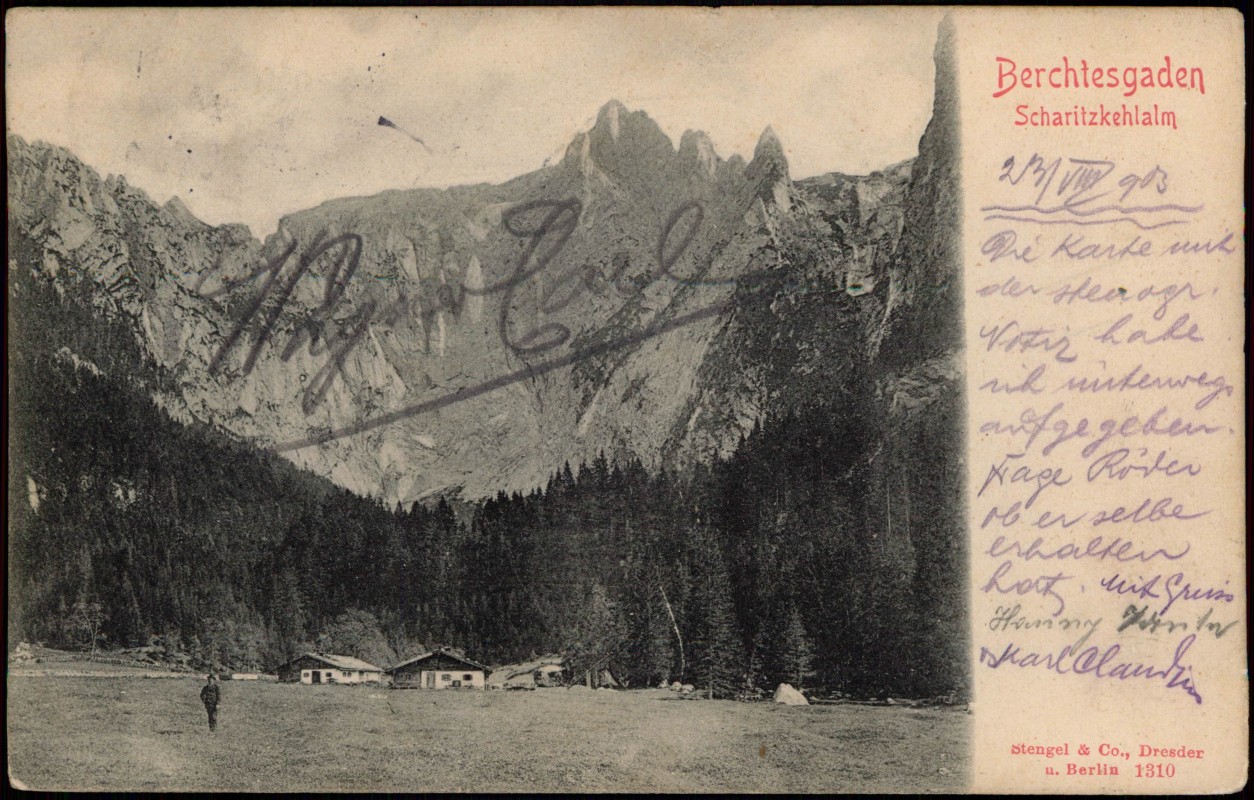 Berchtesgaden
Scharitzkehlalm
23/VIII 903
Die Karte mit
der stenogr.
Notiz habe
ich unterwegs
aufgegeben.
Frage Röder
ob er selbe
erhalten
hat. Mit Gruss
Karl Claudius
Stengel & Co., Dresden
u. Berlin 1310